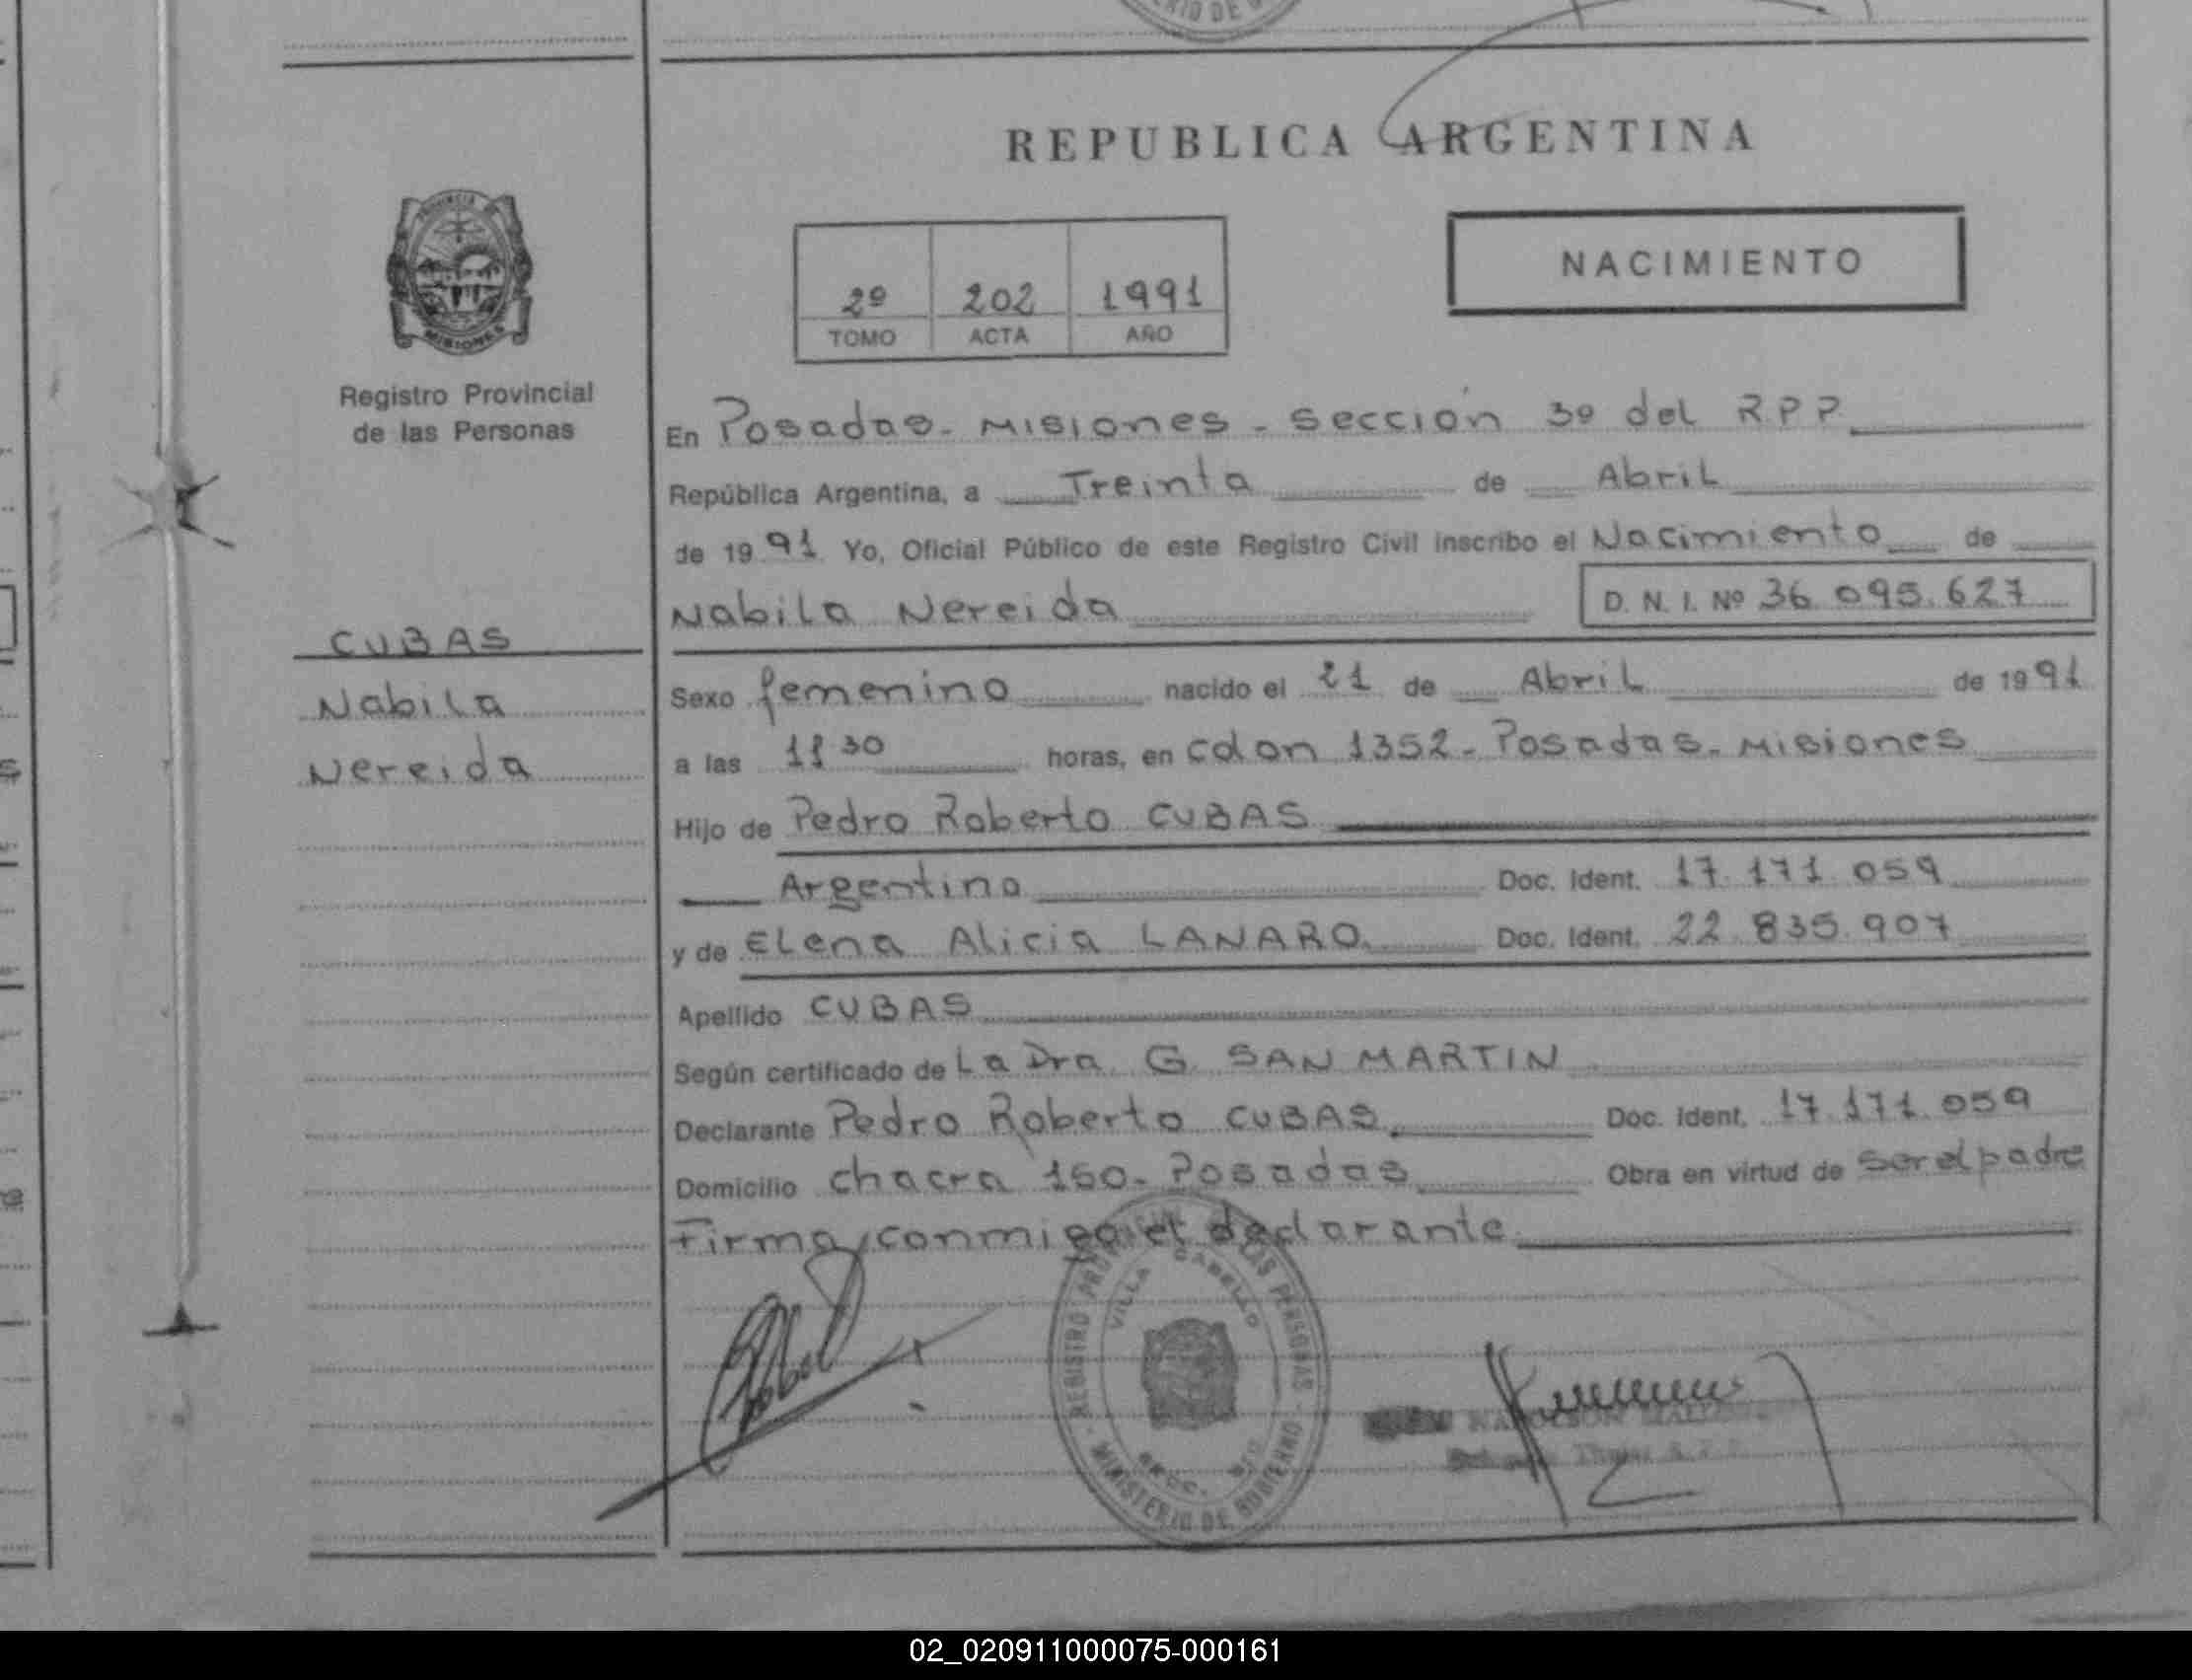 REPUBLICA ARGENTINA
PROVINCIA DE
MISIONES
Registro Provincial
de las Personas
2º 202 1991
TOMO ACTA AÑO
NACIMIENTO
En Posadas - Misiones - sección 3º del R.P.P.
República Argentina, a Treinta de Abril
de 19 91 Yo, Oficial Público de este Registro Civil inscribo el Nacimiento de
Nabila Nereida D. N. I. Nº 36.095.627
CUBAS
Nabila
Nereida
Sexo femenino nacido el 21 de Abril de 19 91
a las horas, en Colon 1352 - Posadas - Misiones
Hijo de Pedro Roberto CUBAS
Argentino Doc. Ident. 17.171.059
y de Elena Alicia LANARO. Doc. Ident. 22.835.907
Apellido CUBAS
Según certificado de La Dra G. SAN MARTIN
Declarante Pedro Roberto CUBAS. Doc. Ident. 17.171.059
Domicilio chacra 150 - Posadas Obra en virtud de ser el padre
Firma conmigo el declarante
REGISTRO LAS PERSONAS
VILLA CABELLO
MINISTERIO DE GOBIERNO
02_020911000075-000161